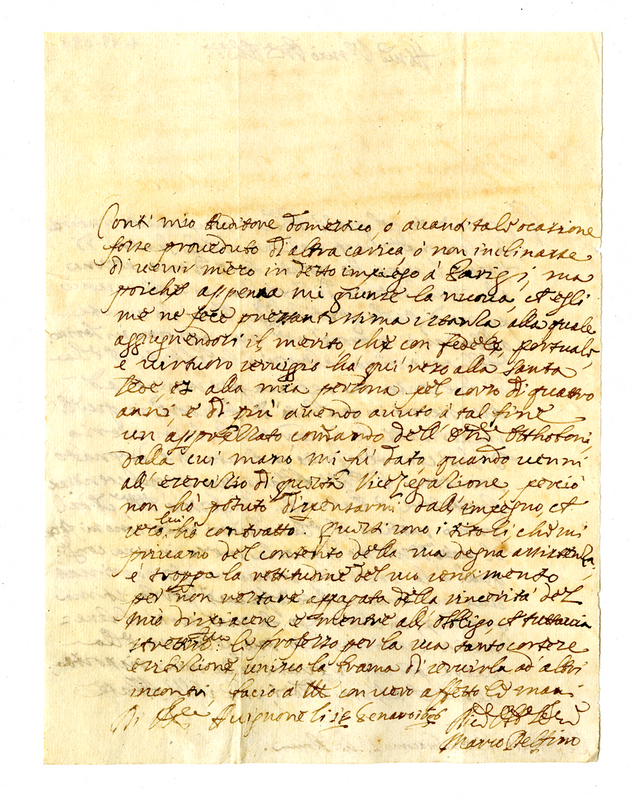 Conti mio Auditore domestico ò quand' tal' ocasione
fosse proveduto d'altra carica, ò non inclinasse
di venir meco in detto impiego à Parigi, ma
poiche appena mi giunse la nuova, ch'egli
me ne fece pressantissima istanza alla quale
aggiugnendosi il merito che con fedele, pontuale
e virtuoso servigio hà qui reso alla Santa
Sede, et alla mia persona pel corso di quattro
anni, e di più avendo avuto à tal fine
un appressato comando dell' Otthoboni,
dalla cui mano mi fù dato quando venni
all' esercizio di questa Vicelegazione, perciò
non hò potuto dispensarmi dall' impegno, ch'
seco lui hò contratto. Questi sono i titoli che mi
privano del contento della sua degna assistenza,
è troppa la rettitudine del suo
per non restare appagata della sincerità del
mio dispiacere, e mentre all' obligo, ch' tuttavia
le professo per la sua tanto cortese
esibizione, unisco la brama di servirla ad altri
incontri, bacio à con vero affetto le mani
Di Avignone li 18 Genaro
Marco Delfino